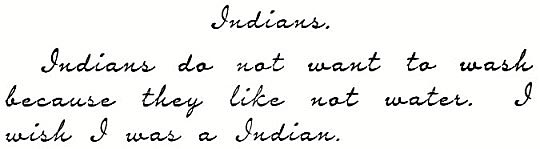 Indians.
Indians do not want to wash
because they like not water. I
wish I was a Indian.